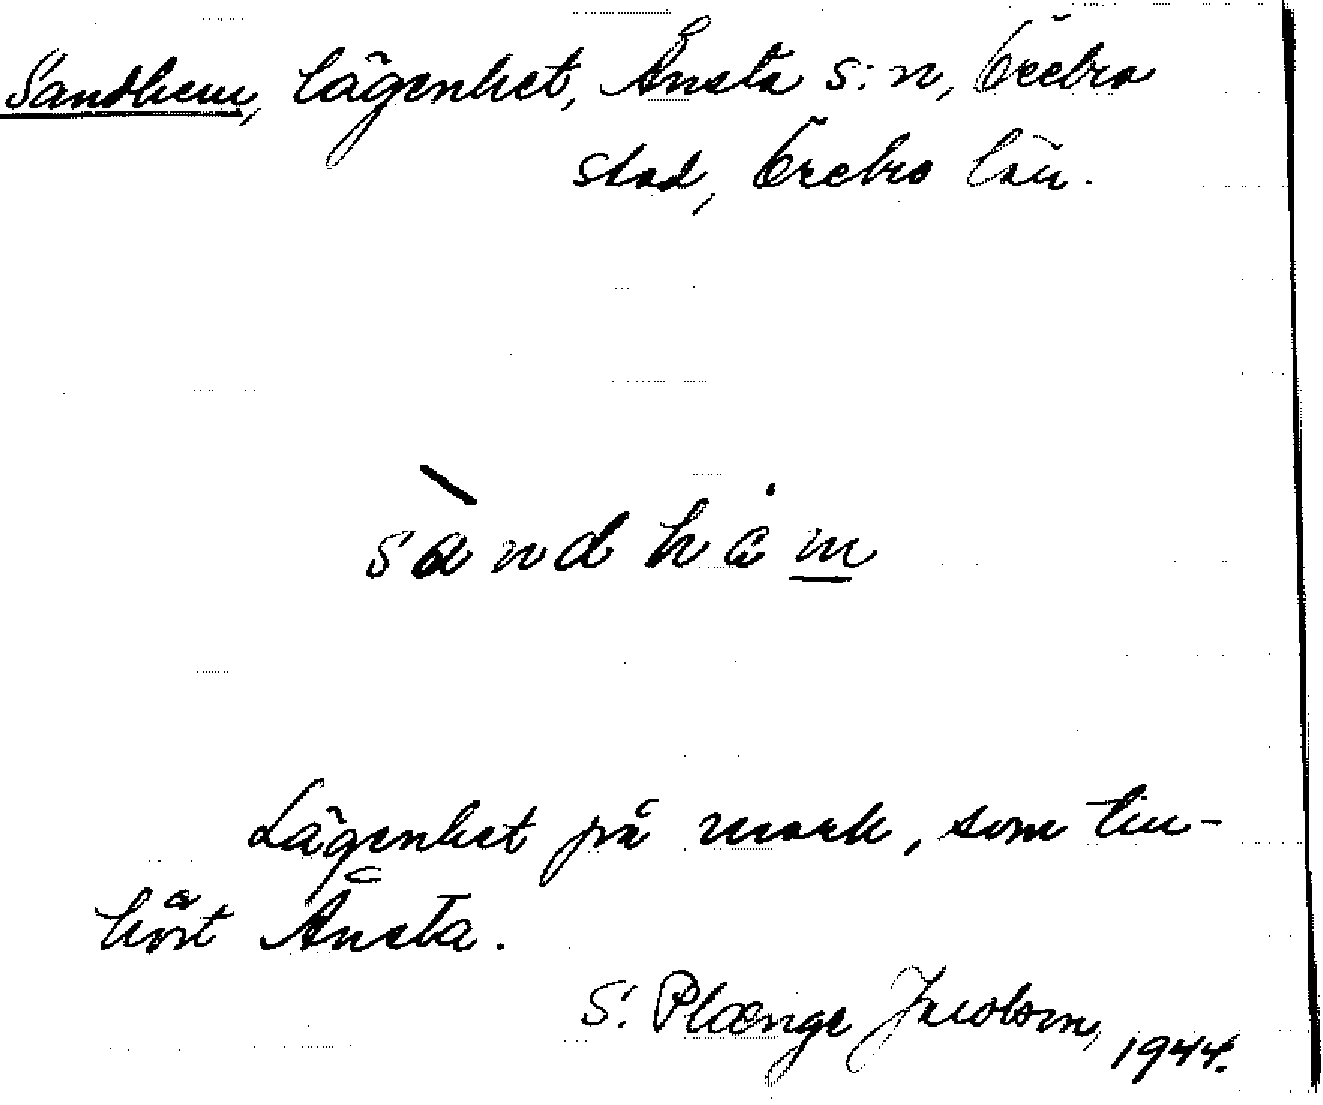 Sandhem, lägenhet, Ånsta s:n, Örebro
stad, Örebro län.
sàndhèm
Lägenhet på mark, som till-
hört Ånsta.
S. Plænge Jacobson, 1944.